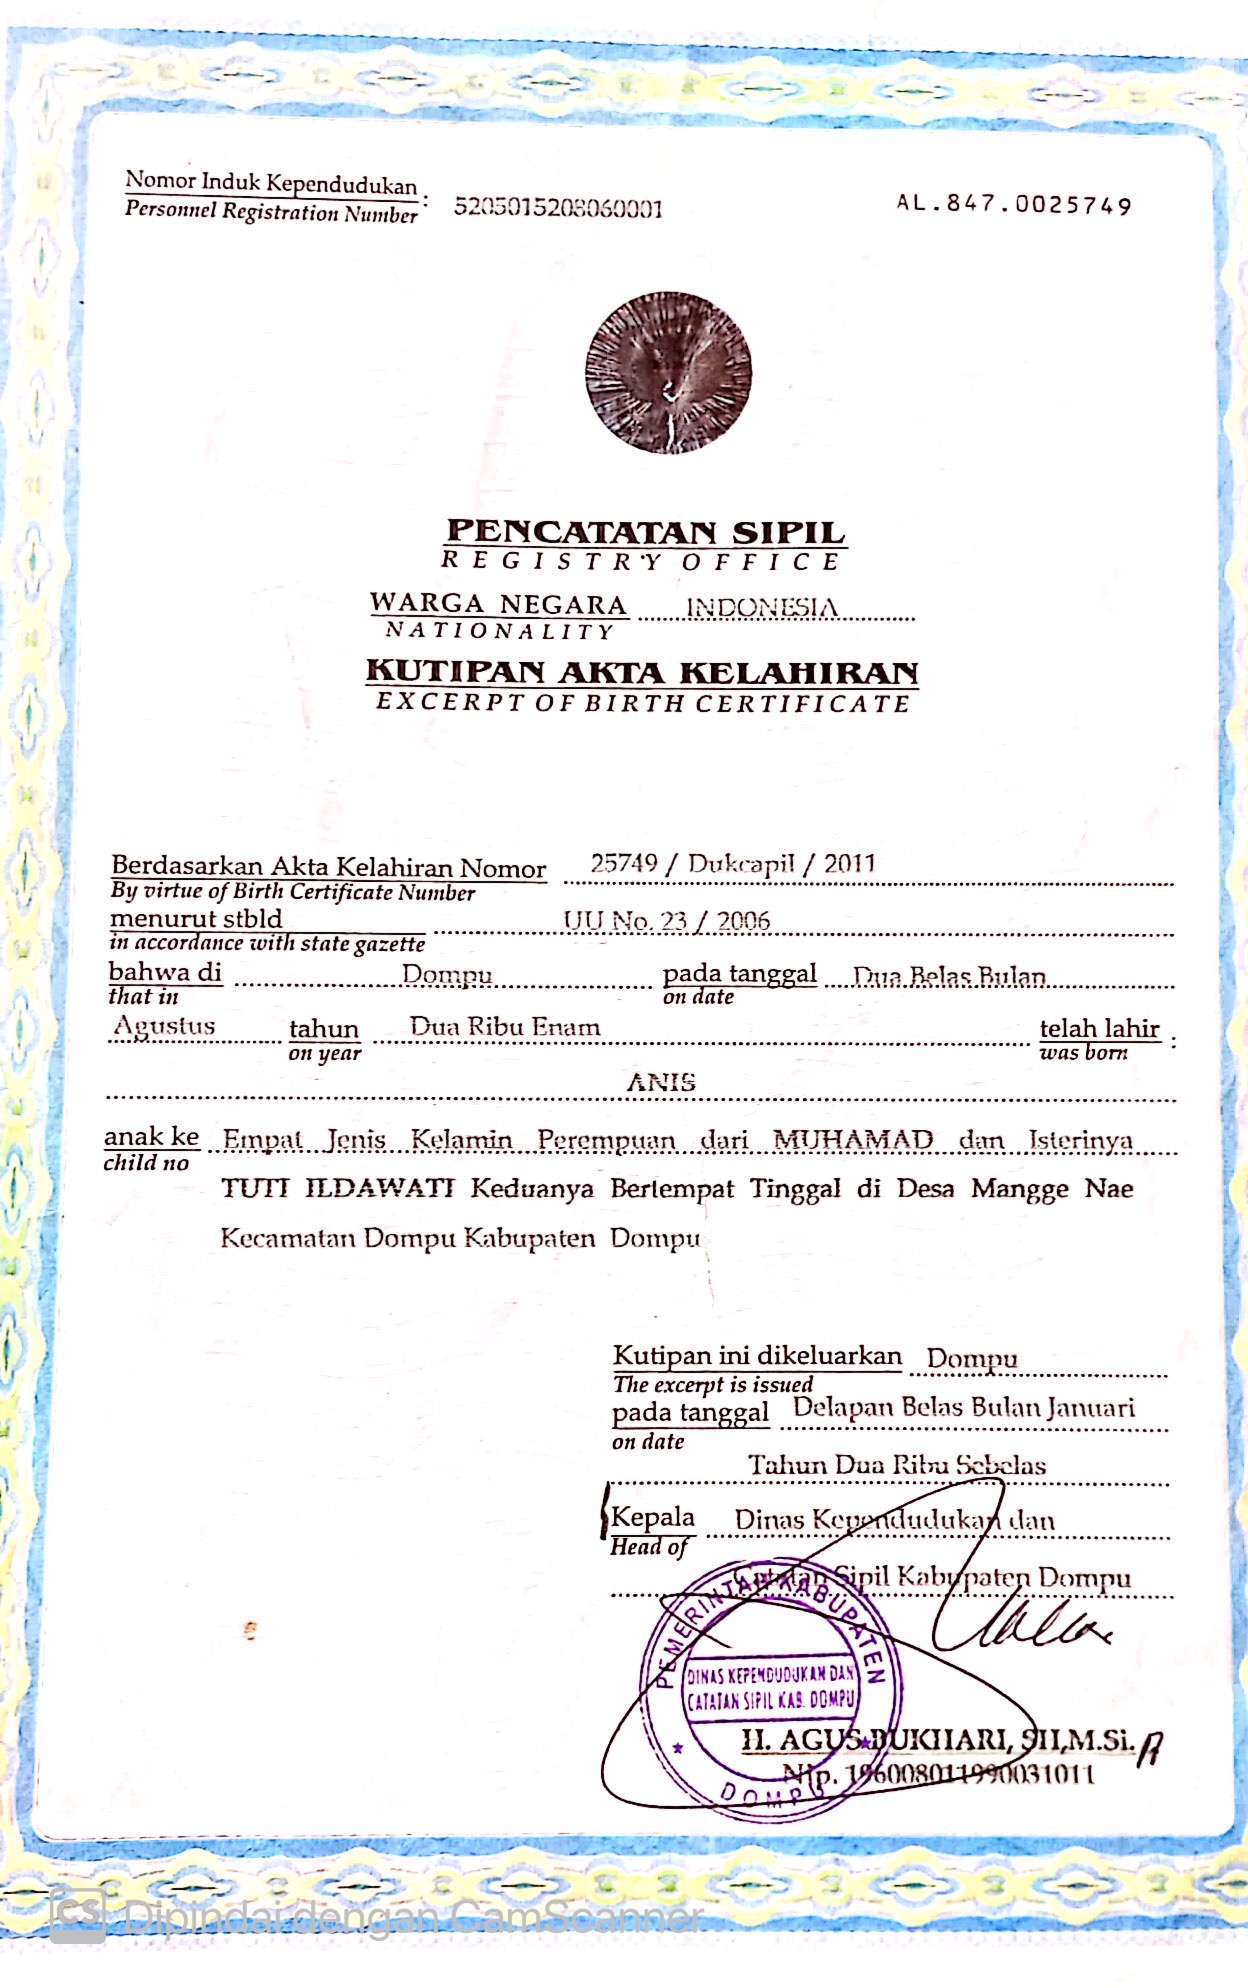 Nomor Induk Kependudukan : 5205015208060001
Personnel Registration Number
AL.847.0025749
PENCATATAN SIPIL
REGISTRY OFFICE
WARGA NEGARA INDONESIA
NATIONALITY
KUTIPAN AKTA KELAHIRAN
EXCERPT OF BIRTH CERTIFICATE
Berdasarkan Akta Kelahiran Nomor 25749 / Dukcapil / 2011
By virtue of Birth Certificate Number
menurut stbld UU No. 23 / 2006
in accordance with state gazette
bahwa di Dompu pada tanggal Dua Belas Bulan
that in on date
Agustus tahun Dua Ribu Enam telah lahir :
on year was born
ANIS
anak ke Empat Jenis Kelamin Perempuan dari MUHAMAD dan Isterinya
child no
TUTI ILDAWATI Keduanya Bertempat Tinggal di Desa Mangge Nae
Kecamatan Dompu Kabupaten Dompu
Kutipan ini dikeluarkan Dompu
The excerpt is issued
pada tanggal Delapan Belas Bulan Januari
on date
Tahun Dua Ribu Sebelas
Kepala Dinas Kependudukan dan
Head of
Catatan Sipil Kabupaten Dompu
PEMERINTAH KABUPATEN
DINAS KEPENDUDUKAN DAN
CATATAN SIPIL KAB. DOMPU
DOMPU
H. AGUS BUKHARI, SH,M.Si.
Nip. 196008011990031011
CS Dipindai dengan CamScanner